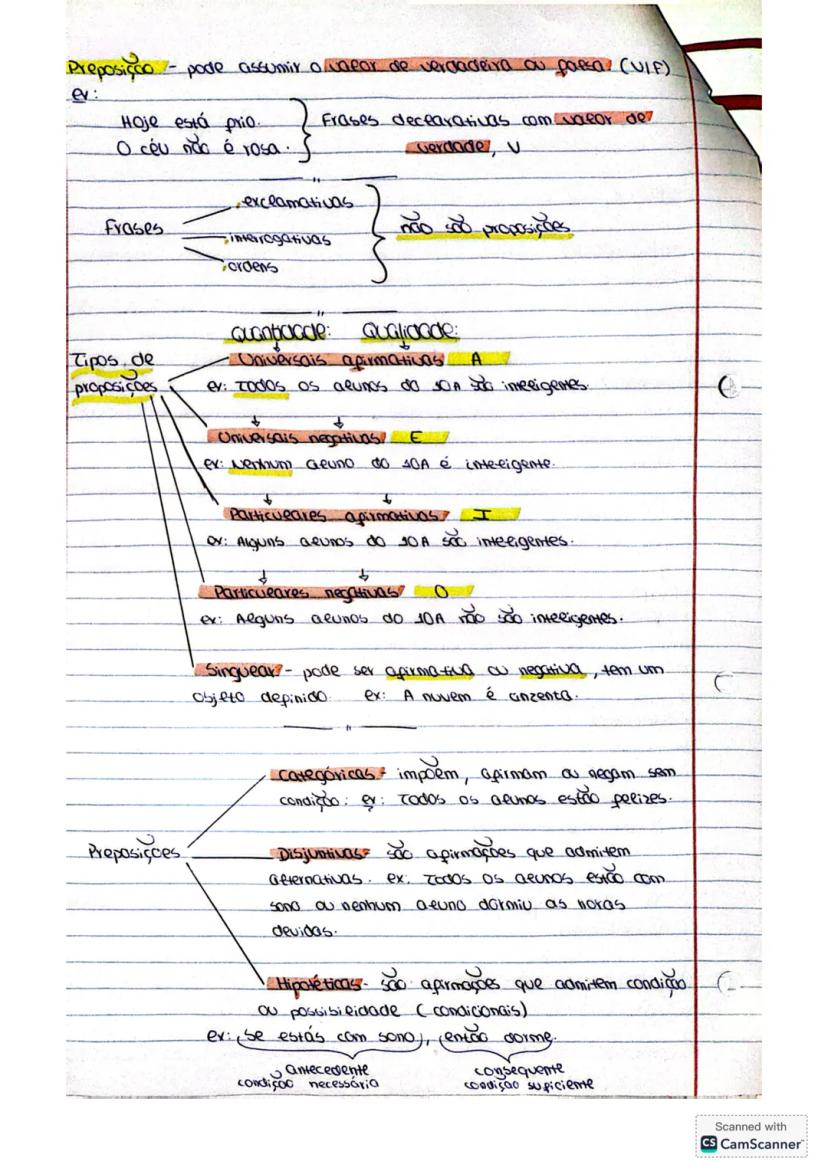 Preposição - pode assumir o valor de verdadeira ou falsa (V/F)
ex:
Hoje está frio.
O céu não é rosa.
Frases declarativas com valor de
verdade, V
Frases
exclamativas
interrogativas
ordens
não são proposições
Quantidade: Qualidade:
Tipos de
proposições
Universais afirmativas A
ex: Todos os alunos do 10A são inteligentes.
Universais negativas E
ex: Nenhum aluno do 10A é inteligente.
Particulares afirmativas I
ex: Alguns alunos do 10A são inteligentes.
Particulares negativas O
ex: Alguns alunos do 10A não são inteligentes.
Singular - pode ser afirmativa ou negativa, tem um
objeto definido. ex: A nuvem é cinzenta.
Preposições
Categóricas - impõem, afirmam ou negam sem
condição; ex: Todos os alunos estão felizes.
Disjuntivas - são afirmações que admitem
alternativas. ex: Todos os alunos estão com
sono ou nenhum aluno dormiu as horas
devidas.
Hipotéticas - são afirmações que admitem condição
ou possibilidade (condicionais)
ex: Se estás com sono, então dorme.
antecedente
condição necessária
consequente
condição suficiente
Scanned with
CS CamScanner